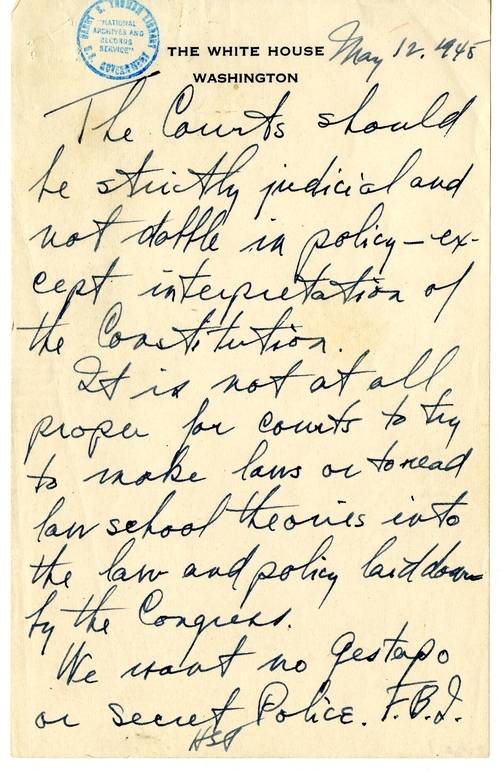 HARRY S. TRUMAN LIBRARY
"NATIONAL
ARCHIVES AND
RECORDS
SERVICE"
U.S. GOVERNMENT
THE WHITE HOUSE May 12, 1945
WASHINGTON
The Courts should
be strictly judicial and
not dabble in policy—ex-
cept interpretation of
the Constitution.
It is not at all
proper for courts to try
to make laws or to read
law school theories into
the law and policy laid down
by the Congress.
We want no Gestapo
or Secret Police. F.B.I.
HST